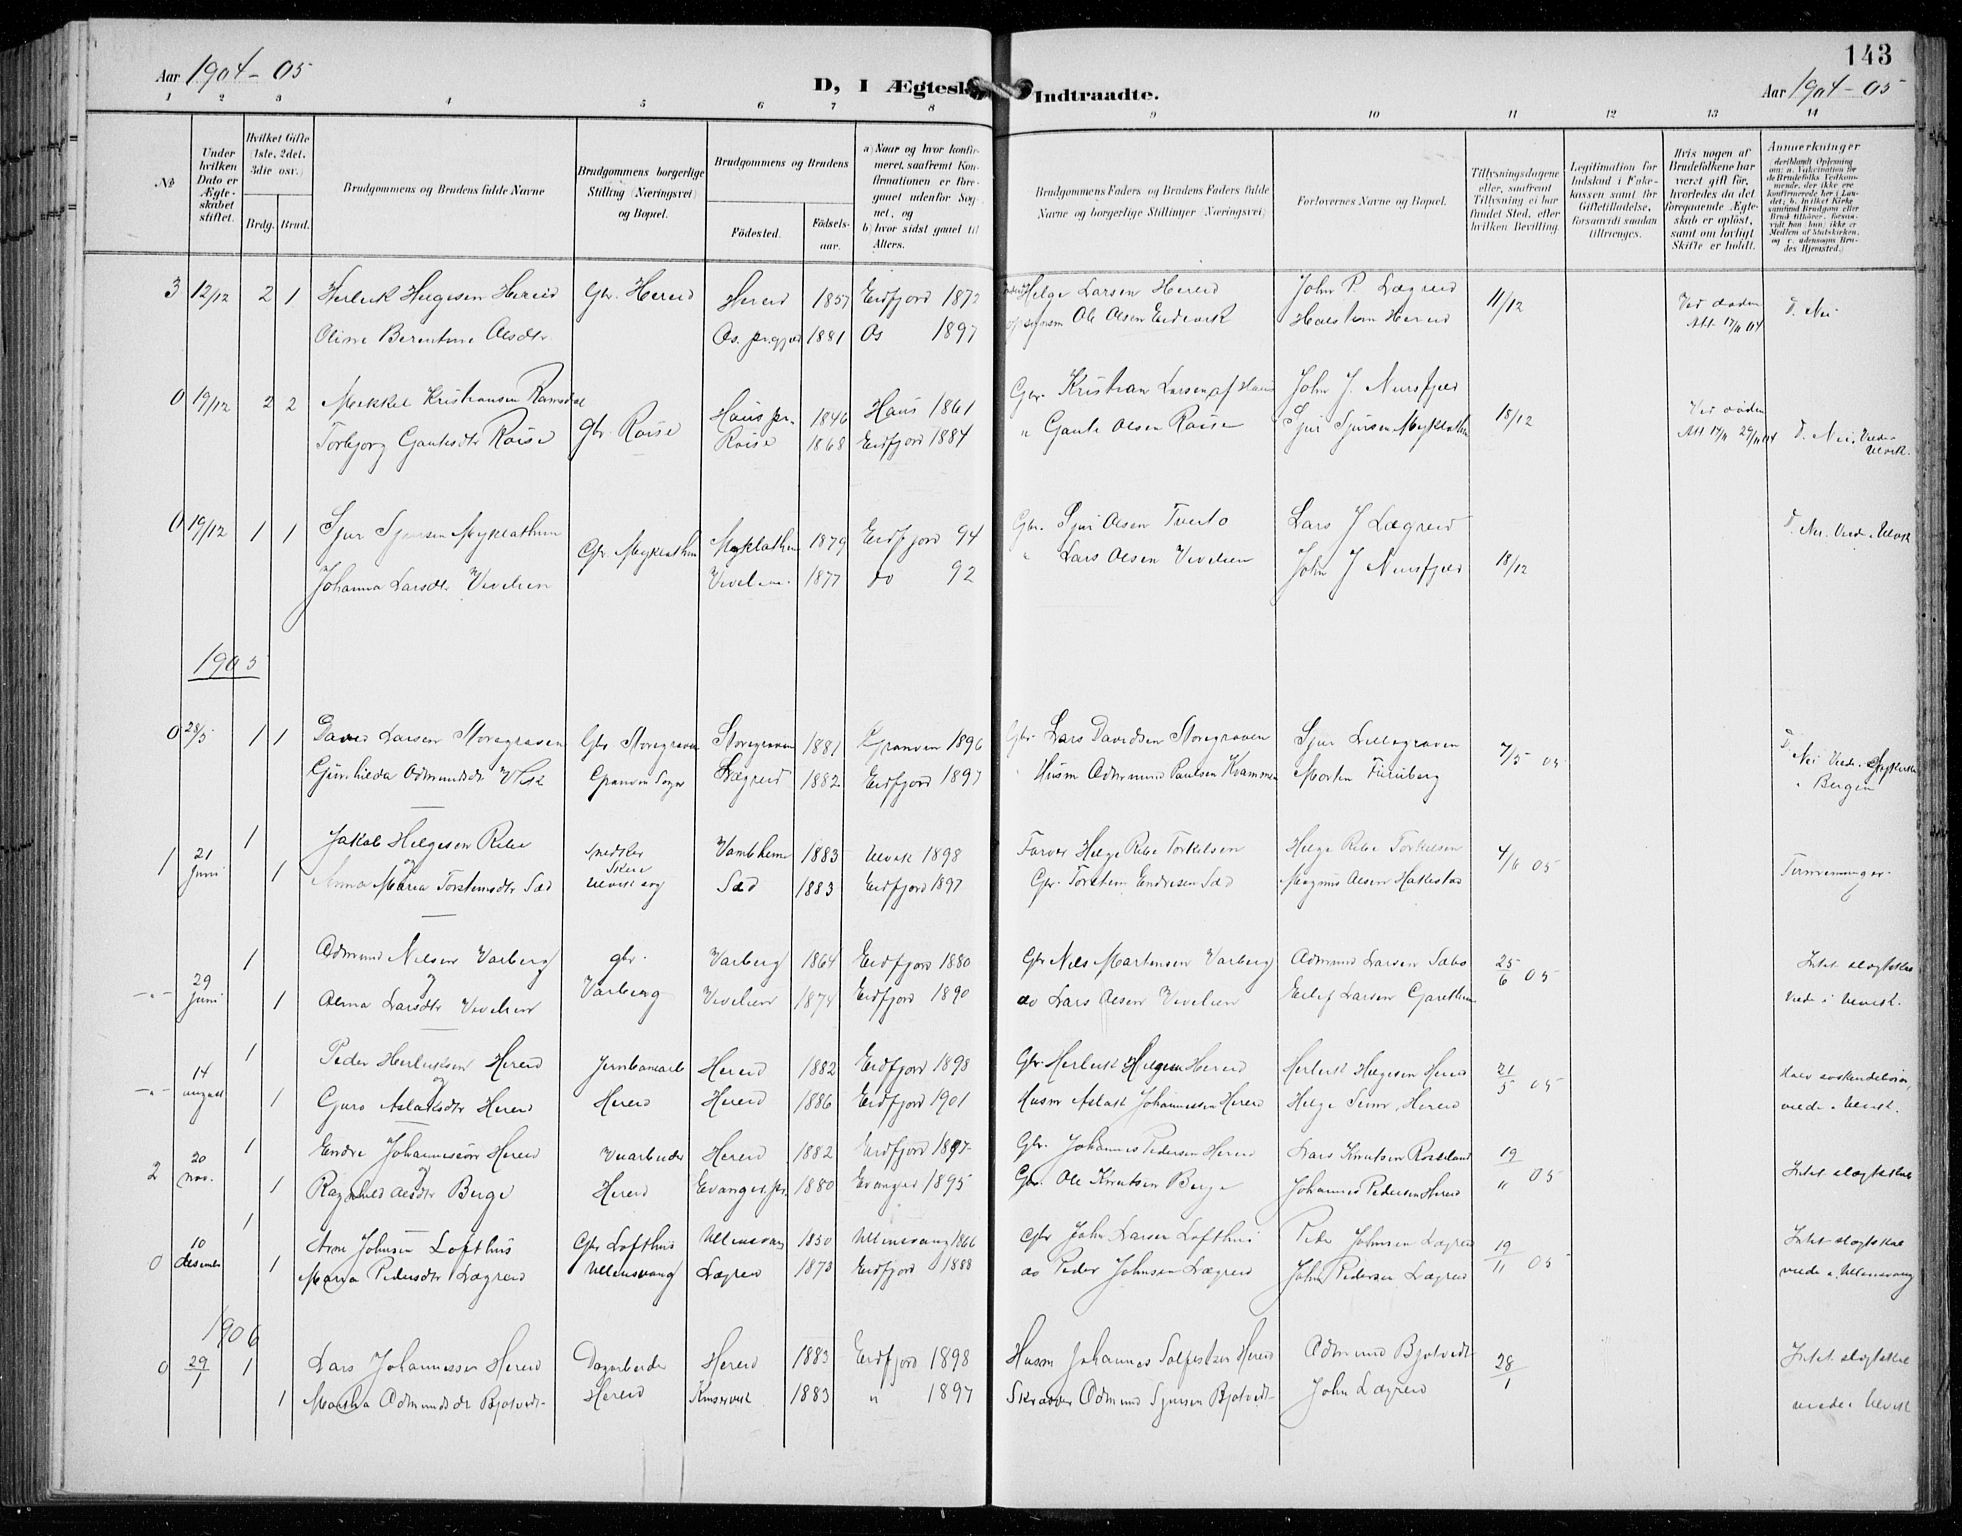 143
Aar 1904-05
D, I Ægtesk
Indtraadte.
Aar 1904-05
1 2 3 4 5 6 7 8 9 10 11 12 13 14
No
Under hvilken Dato er Ægteskabet stiftet.
Hvilket Gifte (1ste, 2det, 3die osv.)
Brdg. Brud.
Brudgommens og Brudens fulde Navne
Brudgommens borgerlige Stilling (Næringsvei) og Bopæl.
Brudgommens og Brudens
Fødested.
Fødselsaar.
a) Naar og hvor konfirmeret, saafremt Konfirmationen er foregaaet udenfor Sognet, og
b) hvor sidst gaaet til Alters.
Brudgommens Faders og Brudens Faders fulde Navne og borgerlige Stillinger (Næringsvei)
Forlovernes Navne og Bopæl.
Tillysningsdagene eller, saafremt Tillysning ei har fundet Sted, efter hvilken Bevilling
Legitimation for Indskud i Enkekassen samt for Giftetilladelse, forsaavidt saadan tiltrænges.
Hvis nogen af Brudefolkene har været gift før, hvorledes da det foregaaende Ægteskab er opløst, samt om lovligt Skifte er holdt.
Anmerkninger
3 12/12 2 1 Herleik Helgesen Hereid Gbr. Hereid Hereid 1857 Eidfjord 1872 Helge Larsen Hereid John P. Lægreid 11/12 Ved døden D. Nei
Oline Berentine Olsdtr Os. pr.gjeld 1881 Os 1897 Ole Olsen Eidevik Halstein Hereid
0 19/12 2 2 Mikkel Kristiansen Ramsdal Haus pr. 1846 Haus 1861 Gbr. Kristian Larsen af Haus John J. Nursfjeld 18/12 Ved døden
Torbjørg Gautesdtr Røise Gbr. Røise Røise 1868 Eidfjord 1884 " Gaute Olsen Røise Sjur Sjursen Myklathun D. Nei. Viede i Ulvik.
0 19/12 1 1 Sjur Sjursen Myklathun Gbr. Myklathun Myklathun 1879 Eidfjord 94 Gbr. Sjur Olsen Tveito Lars J Lægreid 18/12 D. Nei. Viede i Ulvik
Johanna Larsdtr Vivelien Vivelien 1877 do 92 " Lars Olsen Vivelien John J Nursfjeld
1905
0 28/5 1 1 David Larsen Storegraven Gbr Storegraven Storegraven 1881 Granven 1896 Gbr. Lars Davidsen Storegraven Sjur Lillegraven 7/5 05 D. Nei Viede i
Gunhilda Odmundsdtr Granven Sogn Lægreid 1882 Eidfjord 1897 Husm Odmund Paulsen Kvammen Morten Furuberg Bergen
1 21 Juni 1 Jakob Helgesen Ribe Snedker Vambheim 1883 Ulvik 1898 Farver Helge Ribe Torkelsen Helge Ribe Torkelsen 4/6 05
og
1 Anna Maria Torsteinsdtr Sæd Ulvik sog Sæd 1883 Eidfjord 1897 Gbr. Torstein Endresen Sæd Magnus Olsen Hakestad Tremenninger.
-"- 29 Juni 1 Odmund Nilsen Varberg gbr. Varberg 1864 Eidfjord 1880 Gbr Nils Martinsen Varberg Odmund Larsen Sæbø 25/6 05 Intet slegtskab
og
1 Olina Larsdtr Vivelien Varberg Vivelien 1874 Eidfjord 1890 do Lars Olsen Vivelien Eilef Larsen Garethun Viede i Ulvik.
-"- 14 august 1 Peder Herleiksen Hereid Jernbanearb Hereid 1882 Eidfjord 1898 Gbr. Herleik Helgesen Hereid Herleik Helgesen Hereid 21/5 05
og
1 Guro Aslaksdtr Hereid Hereid Hereid 1886 Eidfjord 1901 Husm Aslak Johannessen Hereid Helge Simr. Hereid viede i Ulvik.
2 20 Nov. 1 Endre Johannessen Hereid Veiarbeider Hereid 1882 Eidfjord 1897 Gbr. Johannes Pedersen Hereid Lars Knutsen Rosseland 19/11 05
og
1 Ragnhild Olsdtr Berge Hereid Evanger pr. 1880 Evanger 1895 Gbr. Ole Knutsen Berge Johannes Pedersen Hereid Intet slegtskab
0 10 desember 1 Arne Johnsen Lofthus Gbr Lofthus Ullensvang 1850 Ullensvang 1866 Gbr John Larsen Lofthus Peder Johnsen Lægreid 19/11 05 Intet slegtskab
1 Maria Pedersdtr Lægreid Ullensvang Lægreid 1873 Eidfjord 1888 do Peder Johnsen Lægreid John Pedersen Lægreid viede i Ullensvang
1906
0 29/1 1 Lars Johannessen Hereid Dagarbeider Hereid 1883 Eidfjord 1898 Husm Johannes Salfestsen Hereid Odmund Bjotveit 28/1 Intet slegtskab
1 Martha Odmundsdtr Bjotveit Hereid Kinservik 1883 " 1897 Skrædder Odmund Sjursen Bjotveit John Lægreid viede i Ulvik